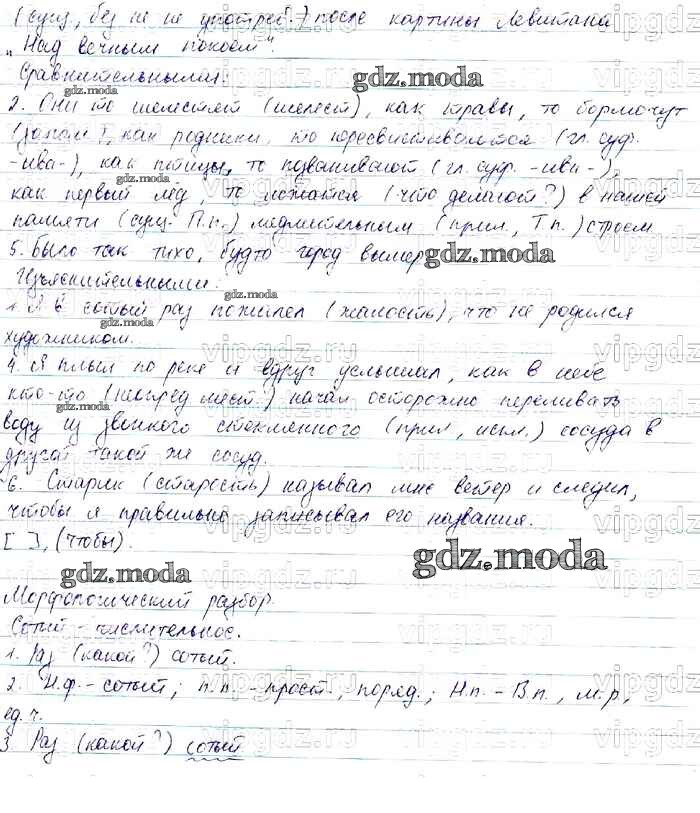 (сущ., без не не употреб.) после картины Левитана
„Над вечным покоем“.
Сравнительными:
2. Они то шелестят (шелест), как травы, то бормочут
как родники, то пересвистываются (гл. суф.
-ива-), как птицы, то позванивают (гл. суф. -ива-),
как первый лёд, то ложатся (что делают?) в нашей
памяти (сущ. П.п.) медлительным (прил., Т.п.) строем
5. Было так тихо, будто город вымер
Изъяснительными:
1. Я в сотый раз пожалел (жалость), что не родился
художником.
4. Я плыл по реке и вдруг услышал, как в небе
кто-то (неопред. мест.) начал осторожно переливать
воду из звонкого стеклянного (прил., искл.) сосуда в
другой такой же сосуд.
6. Старик (старость) называл мне ветер и следил,
чтобы я правильно записывал его названия.
[ ], (чтобы).
Морфологический разбор.
Сотый - числительное.
1. Раз (какой?) сотый.
2. Н.ф. - сотый; п.п. - прост., поряд.; Н.п. - В.п., м.р,
ед. ч.
3 Раз (какой?) сотый
gdz.moda
gdz.moda
gdz.moda
gdz.moda
gdz.moda
gdz.moda
gdz.moda
gdz.moda
gdz.moda
vipgdz.ru